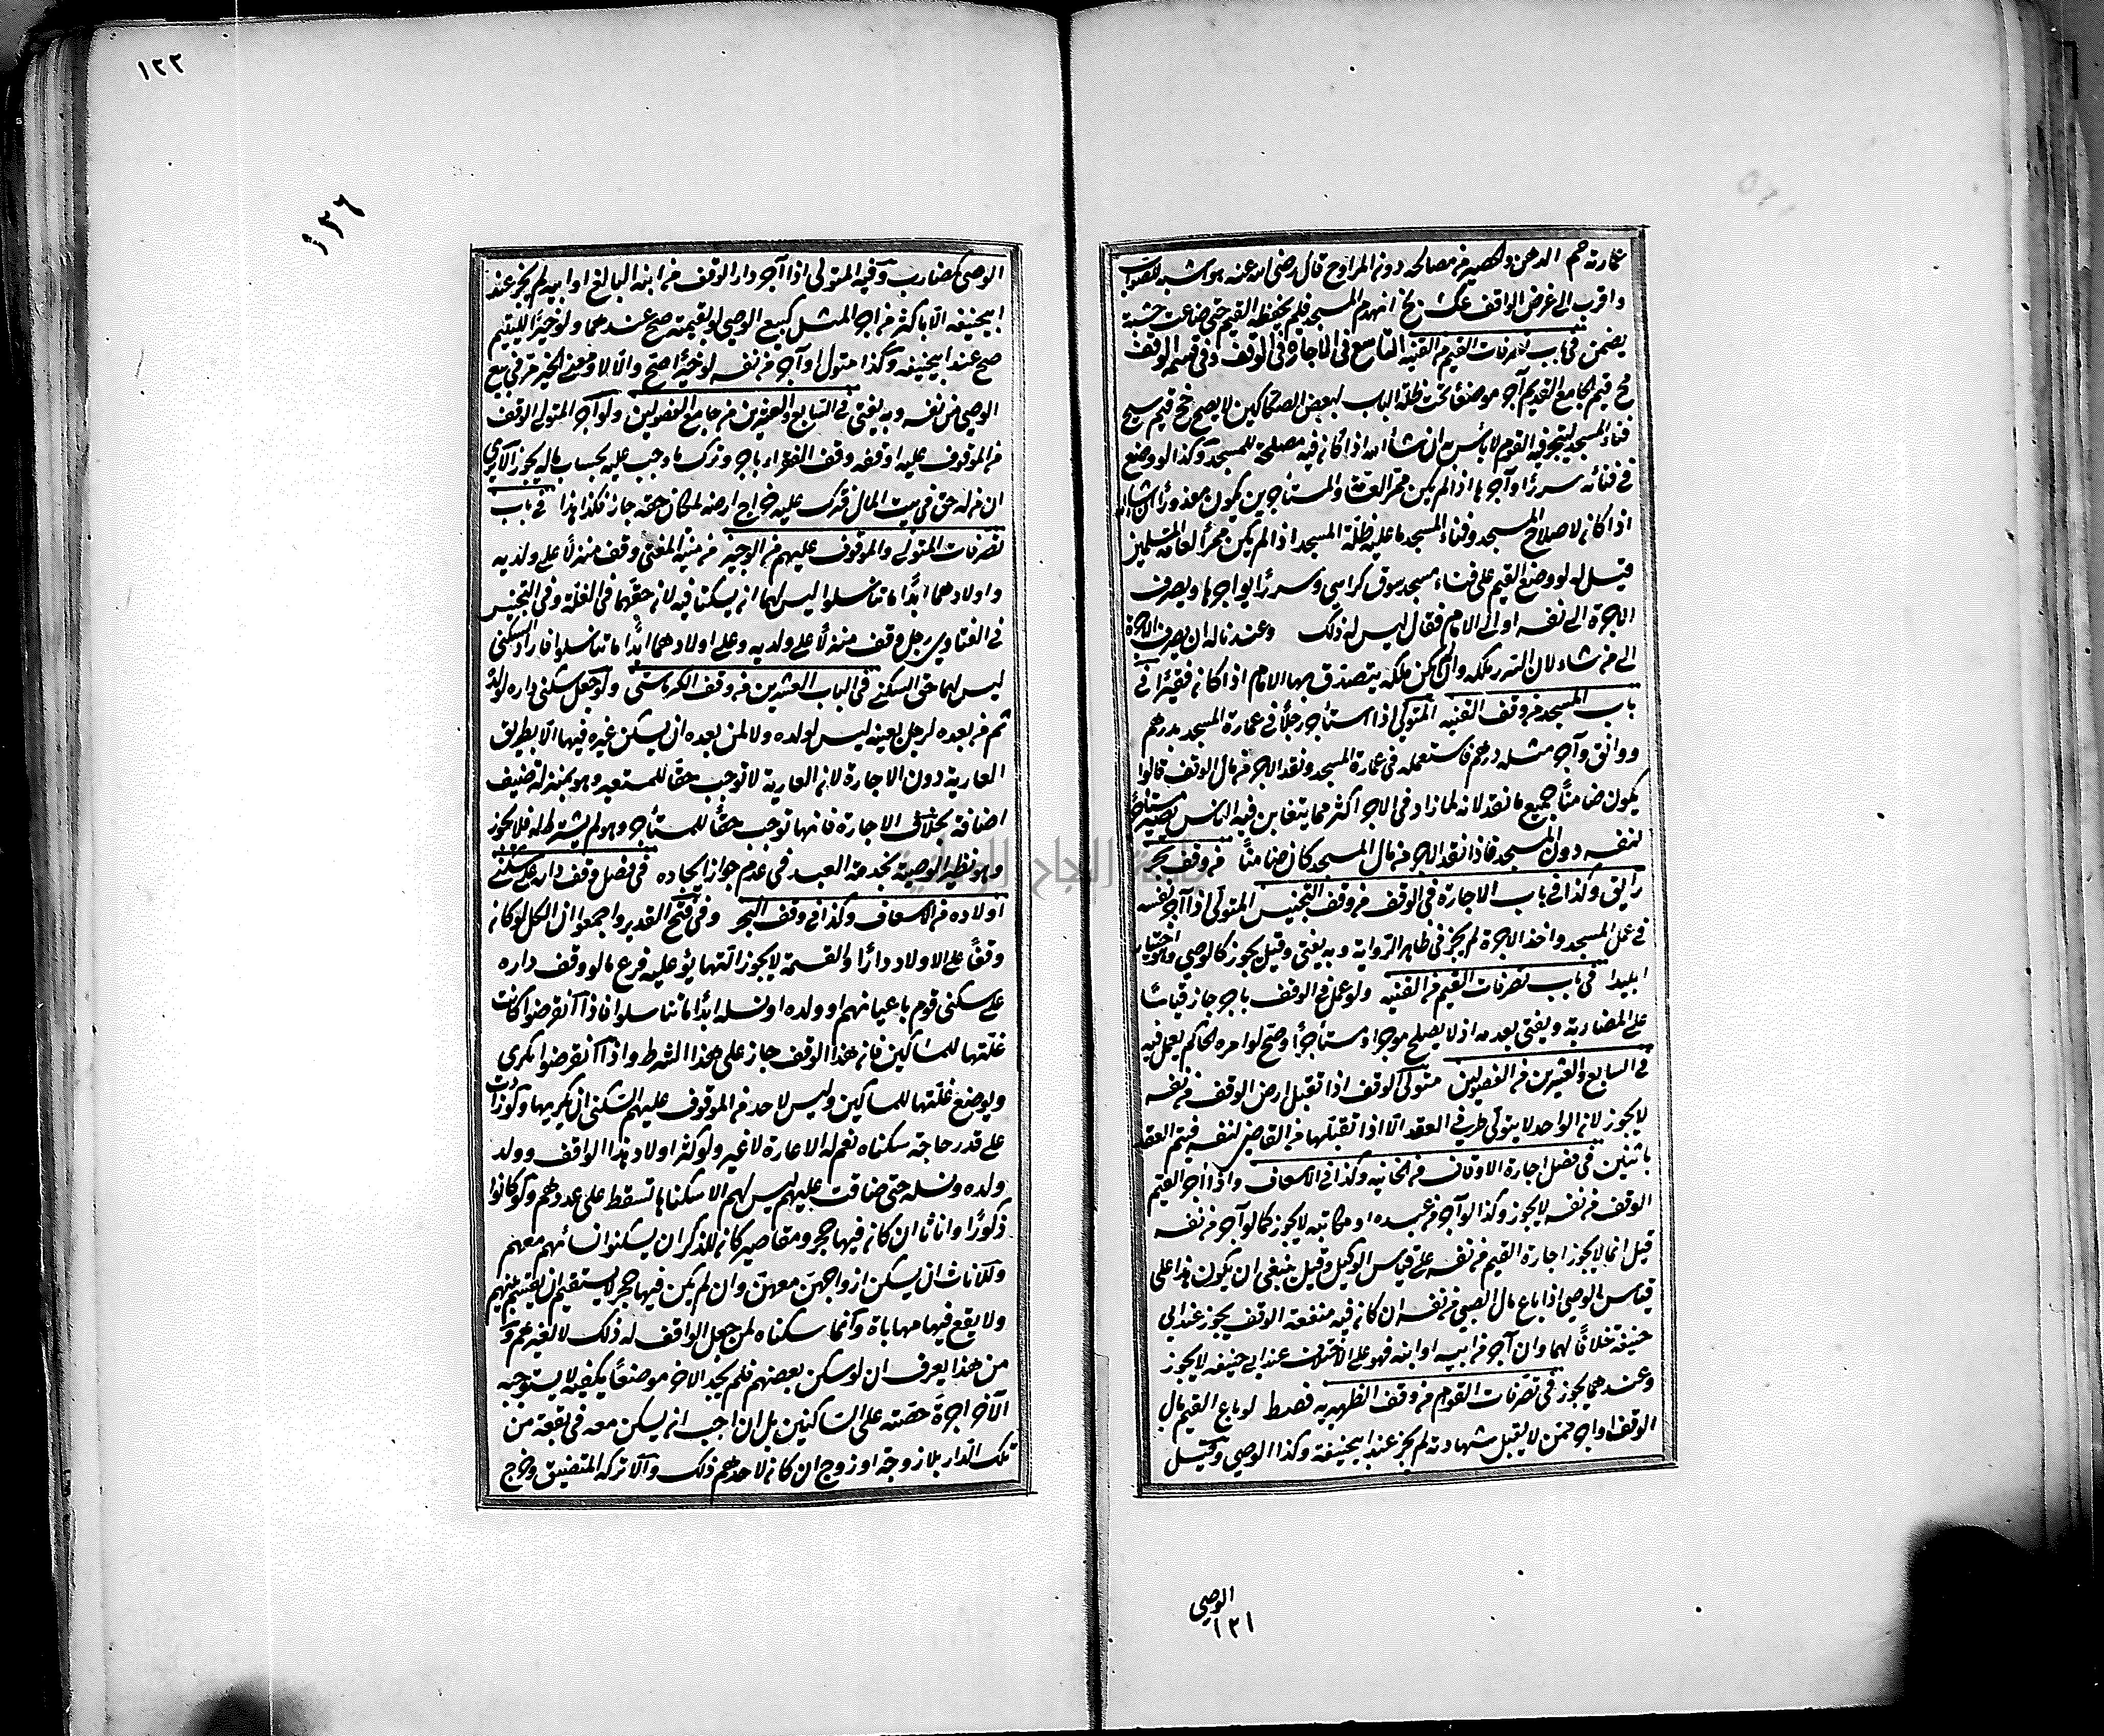 عمارته حم الدهن والحصير من مصالحه دون المراوح قال رضى الله عنه هو اشبه للصواب
واقرب الى غرض الواقف عك بخ انهدم المسجد فلم يحفظه القيم حتى ضاعت خشبة
يضمن فى باب تصرفات القيم من القنيه التاسع فى الاجارة فى الوقف وفى قسمة الوقف
مح قيم الجامع القديم آجر موضعا تحت ظلة الباب لبعض الصكاكين لا يصح خج قيم يبيح
فناء المسجد ليتجر فيه القوم لا بأس به ان شاء الله اذا كان فيه مصلحة للمسجد وكذا لو وضع
فى فنائه سررا وآجرها اذا لم يكن ممر العامة والمستأجرين يكون معذورا ان شاء الله
اذا كان لاصلاح المسجد وفناء المسجد ما عليه ظلة المسجد اذا لم يكن ممرا لعامة المسلمين
قيل له لو وضع القيم على فناء مسجد سوق كراسى وسررا يواجرها ويصرف
الاجرة الى نفسه او الى الامام فقال ليس له ذلك وعندنا له ان يصرف الاجرة
الى من شاء لان السرر ملكه وان لم يكن ملكه يتصدق بها الامام اذا كان فقيرا فى
باب المسجد من وقف القنيه المتولى اذا استأجر رجلا فى عمارة المسجد بدرهم
ودانق وآجر مثله درهم فاستعمله فى عمارة المسجد ونقد الاجر من مال الوقف قالوا
يكون ضامنا جميع ما نقد لانه لما زاد فى الاجر اكثر مما يتغابن فيه الناس يصير مستأجرا
لنفسه دون المسجد فاذا نقد الاجر من مال المسجد كان ضامنا من وقف بحر
رايق وكذا فى باب الاجارة فى الوقف من وقف التجنيس المتولى اذا آجر نفسه
فى عمل المسجد واخذ الاجرة لم يجز فى ظاهر الرواية وبه يفتى وقيل يجوز كالوصى وهو اختيار
ابليدا فى باب تصرفات القيم من القنيه ولو عمل فى الوقف باجر جاز قياسا
على المضاربة ويفتى بعدمه اذ لا يصلح موجرا ومستأجرا وصح لو امره الحاكم يعمل فيه
فى السابع والعشرين من الفصولين متولى الوقف اذا تقبل ارض الوقف من نفسه
لا يجوز لان الواحد لا يتولى طرفى العقد الا اذا تقبلها من القاضى لنفسه فيتم العقد
باثنين فى فصل اجارة الاوقاف من الخانيه وكذا فى الاسعاف واذا اجر القيم
الوقف من نفسه لا يجوز وكذا لو آجر من عبده او مكاتبه لا يجوز كما لو آجر من نفسه
قيل انما لا يجوز اجارة القيم من نفسه على قياس الوكيل وقيل ينبغى ان يكون هذا على
قياس الوصى اذا باع مال الصبى من نفسه ان كان فيه منفعة الوقف يجوز عند ابى
حنيفة خلافا لهما وان آجر من ابيه او ابنه فهو على الاختلاف عند ابى حنيفه لا يجوز
وعندهما يجوز فى تصرفات القوام من وقف الظهيريه فصط لو باع القيم مال
الوقف او اجر ممن لا يقبل شهادته لم يجز عند ابيحنيفة وكذا الوصى وقيل
الوصى
١٢١
١٢٢
١٢٦
الوصى كمضارب وفيه المتولى اذا آجر دار الوقف من ابنه البالغ او ابيه لم يجز عند
ابيحنيفه الا باكثر من اجر المثل كبيع الوصى لو بقيمته صح عندهما ولو خيرا لليتيم
صح عند ابيحنيفه وكذا متول لو آجر من نفسه لو خيرا صح والا لا ومعنى الخير مر فى بيع
الوصى من نفسه وبه يفتى فى السابع والعشرين من جامع الفصولين ولو آجر المتولى الوقف
من الموقوف عليه او قفه وقف الفقراء باجر وترك ما وجب عليه بحساب ماله يجوز الا يرى
ان من له حق فى بيت المال فترك عليه خراج ارضه لمكان حقه جاز فكذا هذا فى باب
تصرفات المتولى والموقوف عليهم من الوجيز من منية المفتى وقف منزلا على ولديه
واولادهما ابدا ما تناسلوا ليس لهما ان يسكنا فيه لان حقهما فى الغلة وفى التجنيس
فى الفتاوى رجل وقف منزلا على ولديه وعلى اولادهما ابدا ما تناسلوا فارادا السكنى
ليس لهما حق السكنى فى الباب العشرين من وقف الكرماستى ولو جعل سكنى داره لولده
ثم من بعده لرجل بعينه ليس لولده ولا لمن بعده ان يسكن غيره فيها الا بطريق
العارية دون الاجارة لان العارية لا توجب حقا للمستعير وهو بمنزلة ضيف
اضافه بخلاف الاجارة فانها توجب حقا للمستأجر وهو لم يشترط له فلا يجوز
وهو نظير الوصية بخدمة العبد فى عدم جواز ايجاره فى فصل وقف داره على سكنى
اولاده من الاسعاف وكذا فى وقف البحر وفى فتح القدير واجمعوا ان الكل لو كان
وقفا على الاولاد دارا والقسمة لا يجوز التهايؤ عليه فرع ما لو وقف داره
على سكنى قوم باعيانهم او ولده او نسله ابدا ما تناسلوا فاذا انقرضوا كانت
غلتها للمساكين فان هذا الوقف جاز على هذا الشرط واذا انقرضوا تكرى
ويوضع غلتها للمساكين وليس لاحد من الموقوف عليهم السكنى ان يكريها ولو زادت
على قدر حاجة سكناه نعم له الاعارة لا غير ولو كثر اولاد هذا الواقف وولد
ولده ونسله حتى ضاقت عليهم ليس لهم الا سكناها تسقط على عددهم ولو كانوا
ذكورا واناثا ان كان فيها حجر ومقاصير كان للذكران يسكنوا نسائهم معهم
وللاناث ان يسكن ازواجهن معهن وان لم يكن فيها حجر لا يستقيم ان يقسم بينهم
ولا يقع فيها مهاباة وانما سكناه لمن جعل الواقف له ذلك لا لغيرهم و
من هذا يعرف ان لو سكن بعضهم فلم يجد الاخر موضعا يكفيه لا يستوجب
الآخر اجرة حصته على الساكنين بل ان احب ان يسكن معه فى بقعة من
تلك الدار بلا زوجة او زوج ان كان لاحدهم ذلك والا ترك المتضيق وخرج